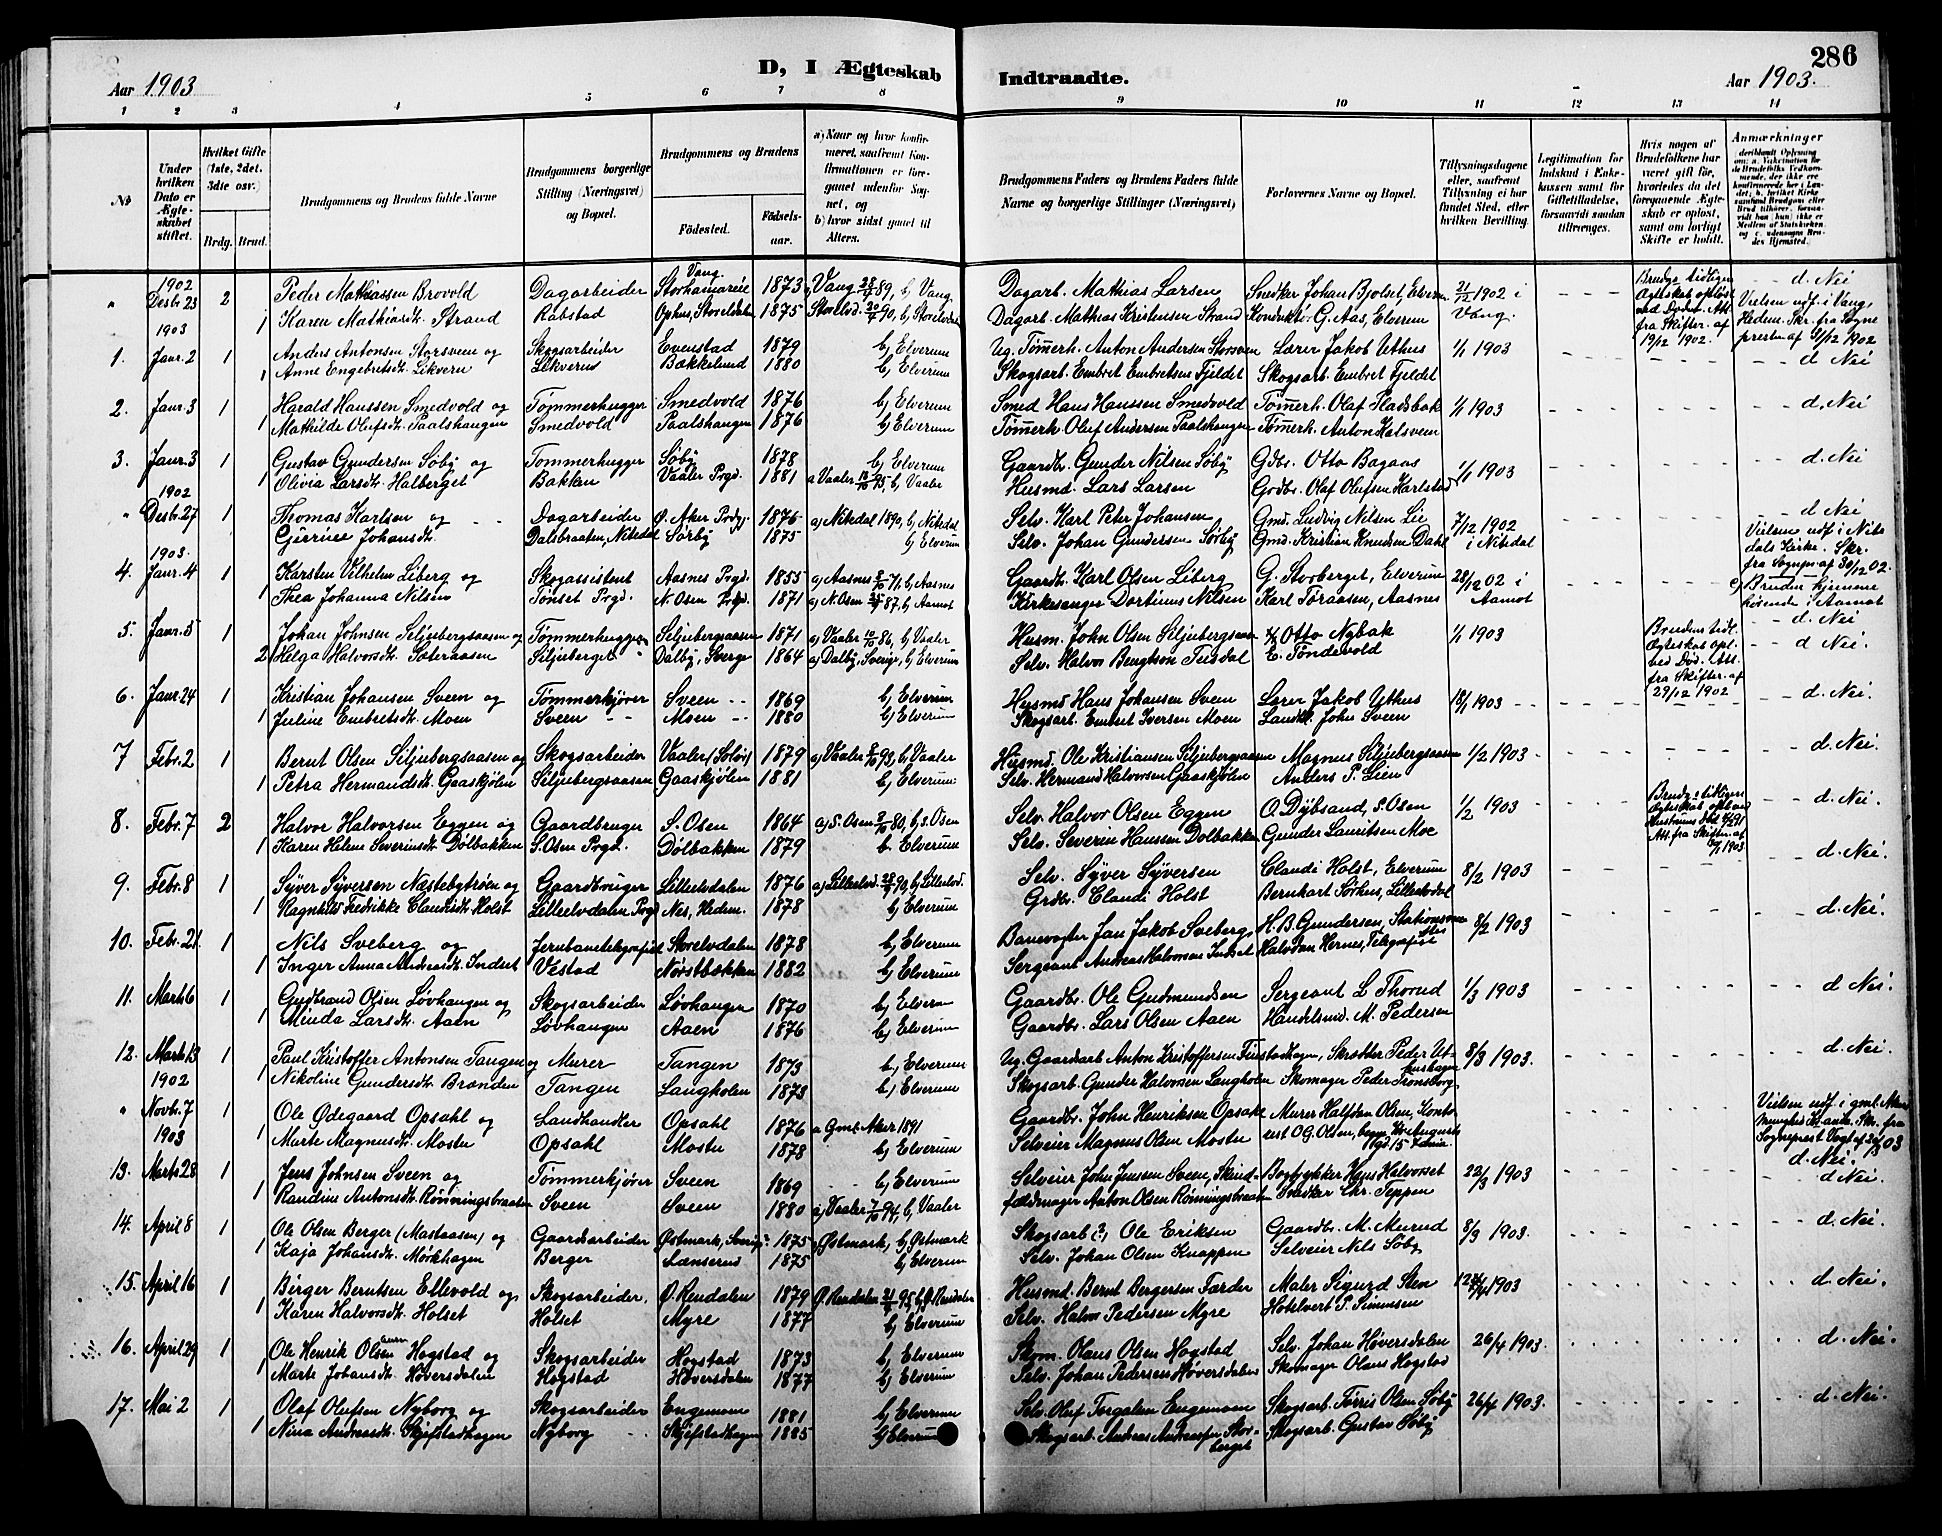 286
Aar 1903
D, I Ægteskab
Indtraadte.
Aar 1903.
1 2 3 4 5 6 7 8 9 10 11 12 13 14
No
Under hvilken Dato er Ægteskabet stiftet.
Hvilket Gifte (1ste, 2det, 3die osv.)
Brdg. Brud.
Brudgommens og Brudens fulde Navne
Brudgommens borgerlige Stilling (Næringsvei) og Bopæl.
Brudgommens og Brudens
Födested.
Födselsaar.
a) Naar og hvor konfirmeret, saafremt Konfirmationen er foregaaet udenfor Sognet, og
b) hvor sidst gaaet til Alters.
Brudgommens Faders og Brudens Faders fulde Navne og borgerlige Stillinger (Næringsvei)
Forlovernes Navne og Bopæl.
Tillysningsdagene eller, saafremt Tillysning ei har fundet Sted, efter hvilken Bevilling.
Legitimation for Indskud i Enkekassen samt for Giftetilladelse, forsaavidt saadan tiltrænges.
Hvis nogen af Brudefolkene har været gift før, hvorledes da det foregaaende Ægteskab er opløst, samt om lovligt Skifte er holdt.
Anmærkninger
1902
" Desbr. 23 2 Peder Mathiassen Brovold Dagarbeider Vang. Storhamarsie 1873 a) Vang 89, b) Vang Dagarb. Mathias Larsen Snedker Johan Bjolset, Elverum 21/12 1902 i Vang. Brudgs tidligere Ægteskab opløst ved Døden. Att. fra Skifter. af 19/12 1902. d. Nei
1 Karen Mathiasdt. Strand Rabstad Ophus, Storelvdalen 1875 Storelvd. 90, b) Storelvdal Dagarb. Mathias Kristensen Strand Konduktør G. Aas, Elverum Vielsen udf. i Vang, Hedem. Skr. fra Sognepresten af 31/12 1902
1903
1. Janr. 2 1 Anders Antonsen Storsveen og Skogsarbeider Evenstad 1879 b) Elverum Ug. Tømmerh. Anton Andersen Storsveen Lærer Jakob Uthus 1/1 1903 d. Nei
1 Anne Engebretsdt. Likvern Likvern Bakkelund 1880 b) Elverum Skogsarb. Embret Embretsen Fjeldet Skogsarb. Embret Fjeldet
2. Janr. 3 1 Harald Hanssen Smedvold og Tømmerhugger Smedvold 1876 b) Elverum Smed Hans Hanssen Smedvold Tømmerh. Olaf Fladsbak 1/1 1903 d. Nei
1 Mathilde Olufsdt. Paalshaugen Smedvold Paalshaugen 1876 b) Elverum Tømmerh. Oluf Andersen Paalshaugen Tømmerh. Anton Kalsveen
3. Janr. 3 1 Gustav Gundersen Søby og Tømmerhugger Søby 1878 b) Elverum Gaardbr. Gunder Nilsen Søby Gdbr. Otto Bagaas 1/1 1903 d. Nei
1 Olivia Larsdt. Halberget Bakken Vaaler Prgd. 1881 a Vaaler 95, b) Vaaler Husmd. Lars Larsen Grdbr. Olaf Olufsen Karlstad
1902
" Desbr. 27 1 Thomas Karlsen og Dagarbeider Ø. Aker Prdg. 1876 a) Nitedal 1890, b) Nitedal Selv. Karl Peter Johansen Gmd. Ludvig Nilsen Lie 7/12 1902 i Nitedal d. Nei
1 Gjerrine Johansdt. Dalsbraaten, Nitedal Sørby 1875 b) Elverum Selv. Johan Gundersen Sørby Gmd. Kristian Knudsen Dahl Vielsen udf. i Nitedals Kirke. Skr. fra Sognpr. af 30/12 02.
1903.
4. Janr. 4 1 Karsten Vilhelm Liberg og Skogassistent Aasnes Prgd. 1855 a) Aasnes 71, b) Aasnes Gaardbr. Karl Olsen Liberg G. Storberget, Elverum 28/12 02 i Aamot c) Bruden hjemmehørende i Aamot d. Nei
1 Thea Johanna Nilsen Tønset Prgd. N. Osen Prgd. 1871 a) N. Osen 87, b) Aamot Kirkesanger Dortinus Nilsen Karl Toraasen, Aasnes
5. Janr. 5 1 Johan Johnsen Siljubergsaasen og Tømmerhugger Siljubergsaasen 1871 a) Vaaler 86, b) Vaaler Husm. John Olsen Siljubergsaasen Otto Nybak 1/1 1903 Brudens tidl. Ægteskab opl. ved Død. Att. fra Skifter. af 29/12 1902 d. Nei
2 Helga Halvorsdt. Sæteraasen Siljuberget Dalby, Sverge 1864 a) Dalby, Sverige, b) Elverum Selv. Halvor Bengtson Tusdal E. Tøndevold
6. Janr. 24 1 Kristian Johansen Sveen og Tømmerkjører Sveen 1869 b) Elverum Husmd Hans Johansen Sveen Lærer Jakob Uthus 18/1 1903 d. Nei
1 Juline Embretsdt. Moen Sveen Moen 1880 b) Elverum Skogsarb. Embret Iversen Moen Landh. John Sveen
7 Febr. 2 1 Bernt Olsen Siljubergsaasen og Skogsarbeider Vaaler (Solør) 1879 a) Vaaler 93, b) Vaaler Husmd. Ole Kristiansen Siljubergsaasen Magnus Siljubergsaasen 1/2 1903 d. Nei.
1 Petra Hermandsdt. Gaaskjølen Siljubergsaasen Gaaskjølen 1881 b) Elverum. Selv. Hermand Halvorsen Gaaskjølen Anders P. Lien
8. Febr. 7 2 Halvor Halvorsen Eggen og Gaardbruger S. Osen 1864 a) S. Osen 80, b) S. Osen Selv. Halvor Olsen Eggen O. Dybsand, S. Osen 1/2 1903 d. Nei.
1 Karen Helene Severinsdt. Dölbakken S. Osen Prgd. Dölbakken 1879 b. Elverum Selv. Severin Hansen Dolbakken Gunder Lauritsen Moe
9. Febr. 8 1 Syver Syversen Næstebytrøen og Gaardbruger Lilleelvdalen 1876 a) Lilleelvd. 90, b) Lilleelvd. Selv. Syver Syversen Claudi Holst, Elverum 8/2 1903 d. Nei.
1 Ragnhild Fredrikke Claudisdt. Holst Lilleelvdalen Prgd Nes, Hedem. 1878 b) Elverum Grdbr. Claudi Holst Bernhart Sørhus, Lilleelvdal
10. Febr. 21 1 Nils Sveberg og Jernbanetelegrafist Storelvdalen 1878 b) Elverum Banevogter Jan Jakob Sveberg H. B. Gundersen, Stationsm 8/2 1903 d. Nei.
1 Inger Anna Andreasdt. Indset Vestad Nørstbakken 1882 b) Elverum Sergeant Andreas Halvorsen Indset Halvdan Hernes, Telegrafist
11. Marts 6 1 Gudbrand Olsen Løvhaugen og Skogsarbeider Løvhaugen 1870 b) Elverum Gaardbr. Ole Gudmundsen Sergeant L Thorud 1/3 1903 d. Nei.
1 Minda Larsdt. Aaen Løvhaugen Aaen 1876 b) Elverum Gaardbr. Lars Olsen Aaen Handelsmd. M. Pedersen
12. Marts 13 1 Paul Kristoffer Antonsen Tangen og Murer Tangen 1873 b) Elverum Ug. Gaardarb Anton Kristoffersen Skrædder Peder Uthushagen 8/3 1903. d. Nei.
1 Nikoline Gundersdt. Brænden Tangen Langholen 1873 b) Elverum Skogsarb. Gunder Halvorsen Langholen Skomager Peder Tronsborg
1902
" Novbr. 7 1 Ole Ødegaard Opsahl og Landhandler Opsahl 1876 a Gml. Aker 1891 Gaardbr. John Henriksen Opsahl Murer Halfdan Olsen, Kontorest O. G. Olsen, Vielsen udf. i gml. Akers d. Nei.
1903
1 Marte Magnusdt. Mostu Opsahl Mostu 1878 b) Elverum Selveier Magnus Olsen Mostu
13. Marts 28 1 Jens Johnsen Sveen og Tømmerkjører Sveen 1869 b) Elverum Selveier John Jensen Sveen, Skindfældmager Bogtrykker Hans Halvorset 22/3 1903 d Nei.
1 Randine Antonsdt. Rønningsbraaten Sveen Sveen 1880 a) Vaaler 94, b) Vaaler Anton Olsen Rønningsbraaten Snedker Chr. Teppen
14. April 8 1 Ole Olsen Berger (Mastaasen) og Gaardsarbeider Østmark, Sverige 1875 a) Østmark, b) Østmark Skogsarb (?) Ole Eriksen Gaardbr. M. Murud 8/3 1903. d. Nei.
1 Kaja Johansdt. Mørkhagen Berger Lanserud 1875 b) Elverum Selv. Johan Olsen Knappen Selveier Nils Søby
15. April 16 1 Birger Berntsen Ellevold og Skogsarbeider, Ø. Rendalen 1879 Ø. Rendalen 95, b) Ø. Rendalen Husmd. Bernt Bergersen Farder Maler Sigurd Sten 1903 d. Nei.
1 Karen Halvorsdt. Holset Holset Myre 1877 b) Elverum Selv. Halvor Pedersen Myre Hotelvert P. Simensen
16. April 29 1 Ole Henrik Olsen Hogstad og Skogsarbeider Hogstad 1873 b) Elverum Skom. Olaus Olsen Hogstad Selv. Johan Høversdalen 26/4 1903. d. Nei
1 Marte Johansdt. Høversdalen Hogstad Høversdalen 1877 b) Elverum Selv. Johan Pedersen Høversdalen Skomager Olaus Hogstad
17. Mai 2 1 Olaf Olufsen Nyborg og Skogsarbeider Engemoen 1881 b) Elverum Selv. Oluf Torgalen Engemoen Skogsarb. Törris Olsen Søby 26/4 1903. d. Nei.
1 Nina Andreasdt. Skjefstadhagen Nyborg Skjefstadhagen 1885 b) Elverum Skogsarb. Andreas Andreassen Storberget Skogsarb. Gustav Søby